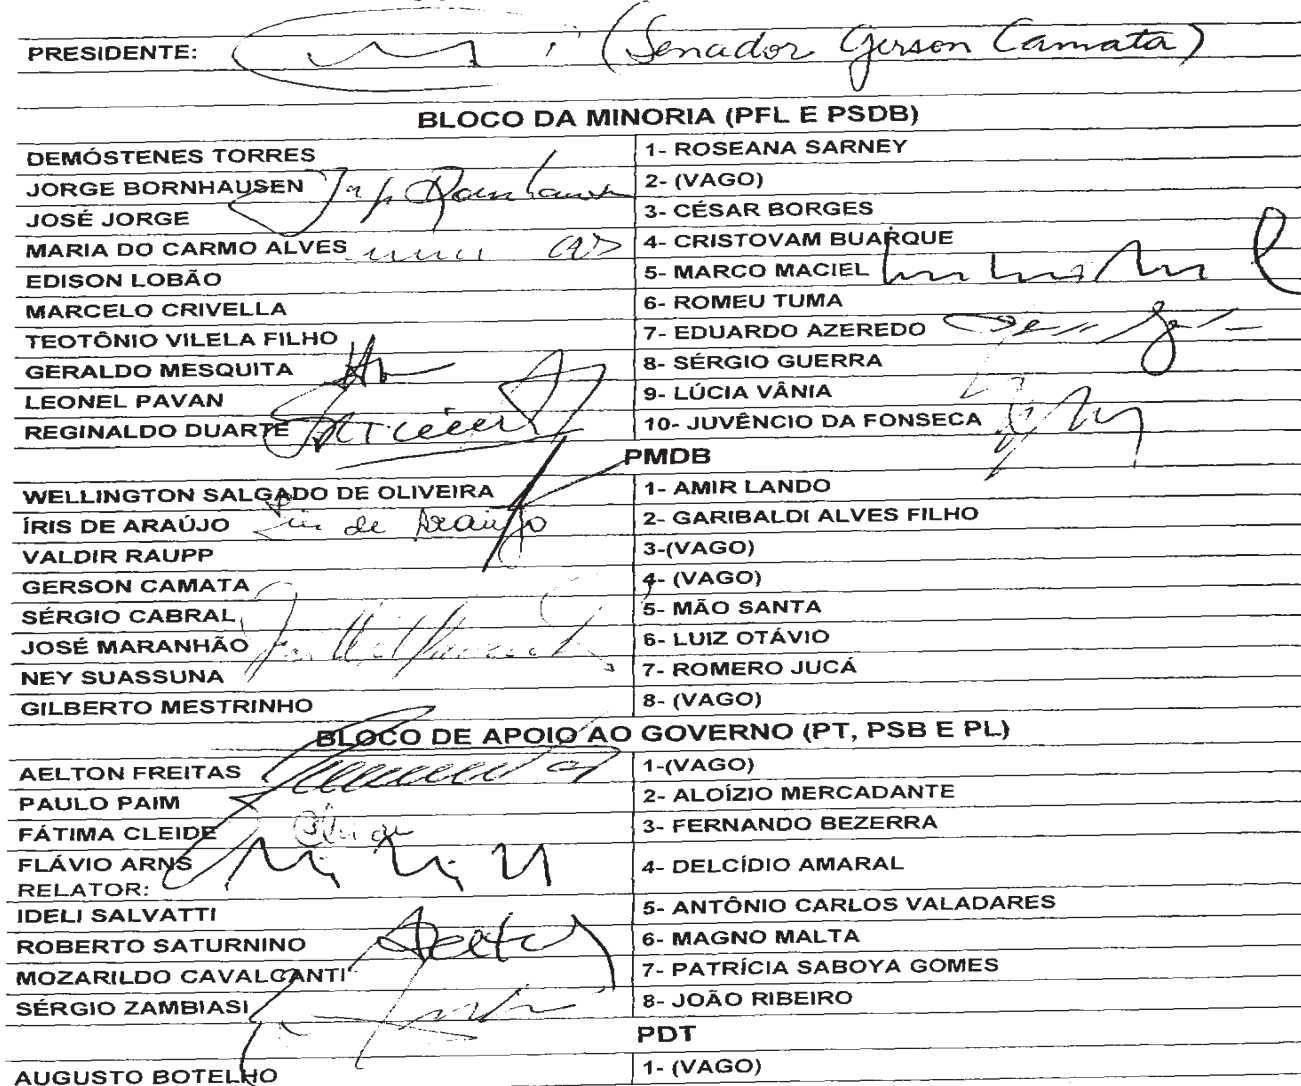 PRESIDENTE: (Senador Gerson Camata)
BLOCO DA MINORIA (PFL E PSDB)
DEMÓSTENES TORRES 1- ROSEANA SARNEY
JORGE BORNHAUSEN 2- (VAGO)
JOSÉ JORGE 3- CÉSAR BORGES
MARIA DO CARMO ALVES 4- CRISTOVAM BUARQUE
EDISON LOBÃO 5- MARCO MACIEL
MARCELO CRIVELLA 6- ROMEU TUMA
TEOTÔNIO VILELA FILHO 7- EDUARDO AZEREDO
GERALDO MESQUITA 8- SÉRGIO GUERRA
LEONEL PAVAN 9- LÚCIA VÂNIA
REGINALDO DUARTE 10- JUVÊNCIO DA FONSECA
PMDB
WELLINGTON SALGADO DE OLIVEIRA 1- AMIR LANDO
ÍRIS DE ARAÚJO Íris de Araújo 2- GARIBALDI ALVES FILHO
VALDIR RAUPP 3-(VAGO)
GERSON CAMATA 4- (VAGO)
SÉRGIO CABRAL 5- MÃO SANTA
JOSÉ MARANHÃO 6- LUIZ OTÁVIO
NEY SUASSUNA 7- ROMERO JUCÁ
GILBERTO MESTRINHO 8- (VAGO)
BLOCO DE APOIO AO GOVERNO (PT, PSB E PL)
AELTON FREITAS 1-(VAGO)
PAULO PAIM 2- ALOÍZIO MERCADANTE
FÁTIMA CLEIDE 3- FERNANDO BEZERRA
FLÁVIO ARNS 4- DELCÍDIO AMARAL
RELATOR:
IDELI SALVATTI 5- ANTÔNIO CARLOS VALADARES
ROBERTO SATURNINO 6- MAGNO MALTA
MOZARILDO CAVALCANTI 7- PATRÍCIA SABOYA GOMES
SÉRGIO ZAMBIASI 8- JOÃO RIBEIRO
PDT
AUGUSTO BOTELHO 1- (VAGO)